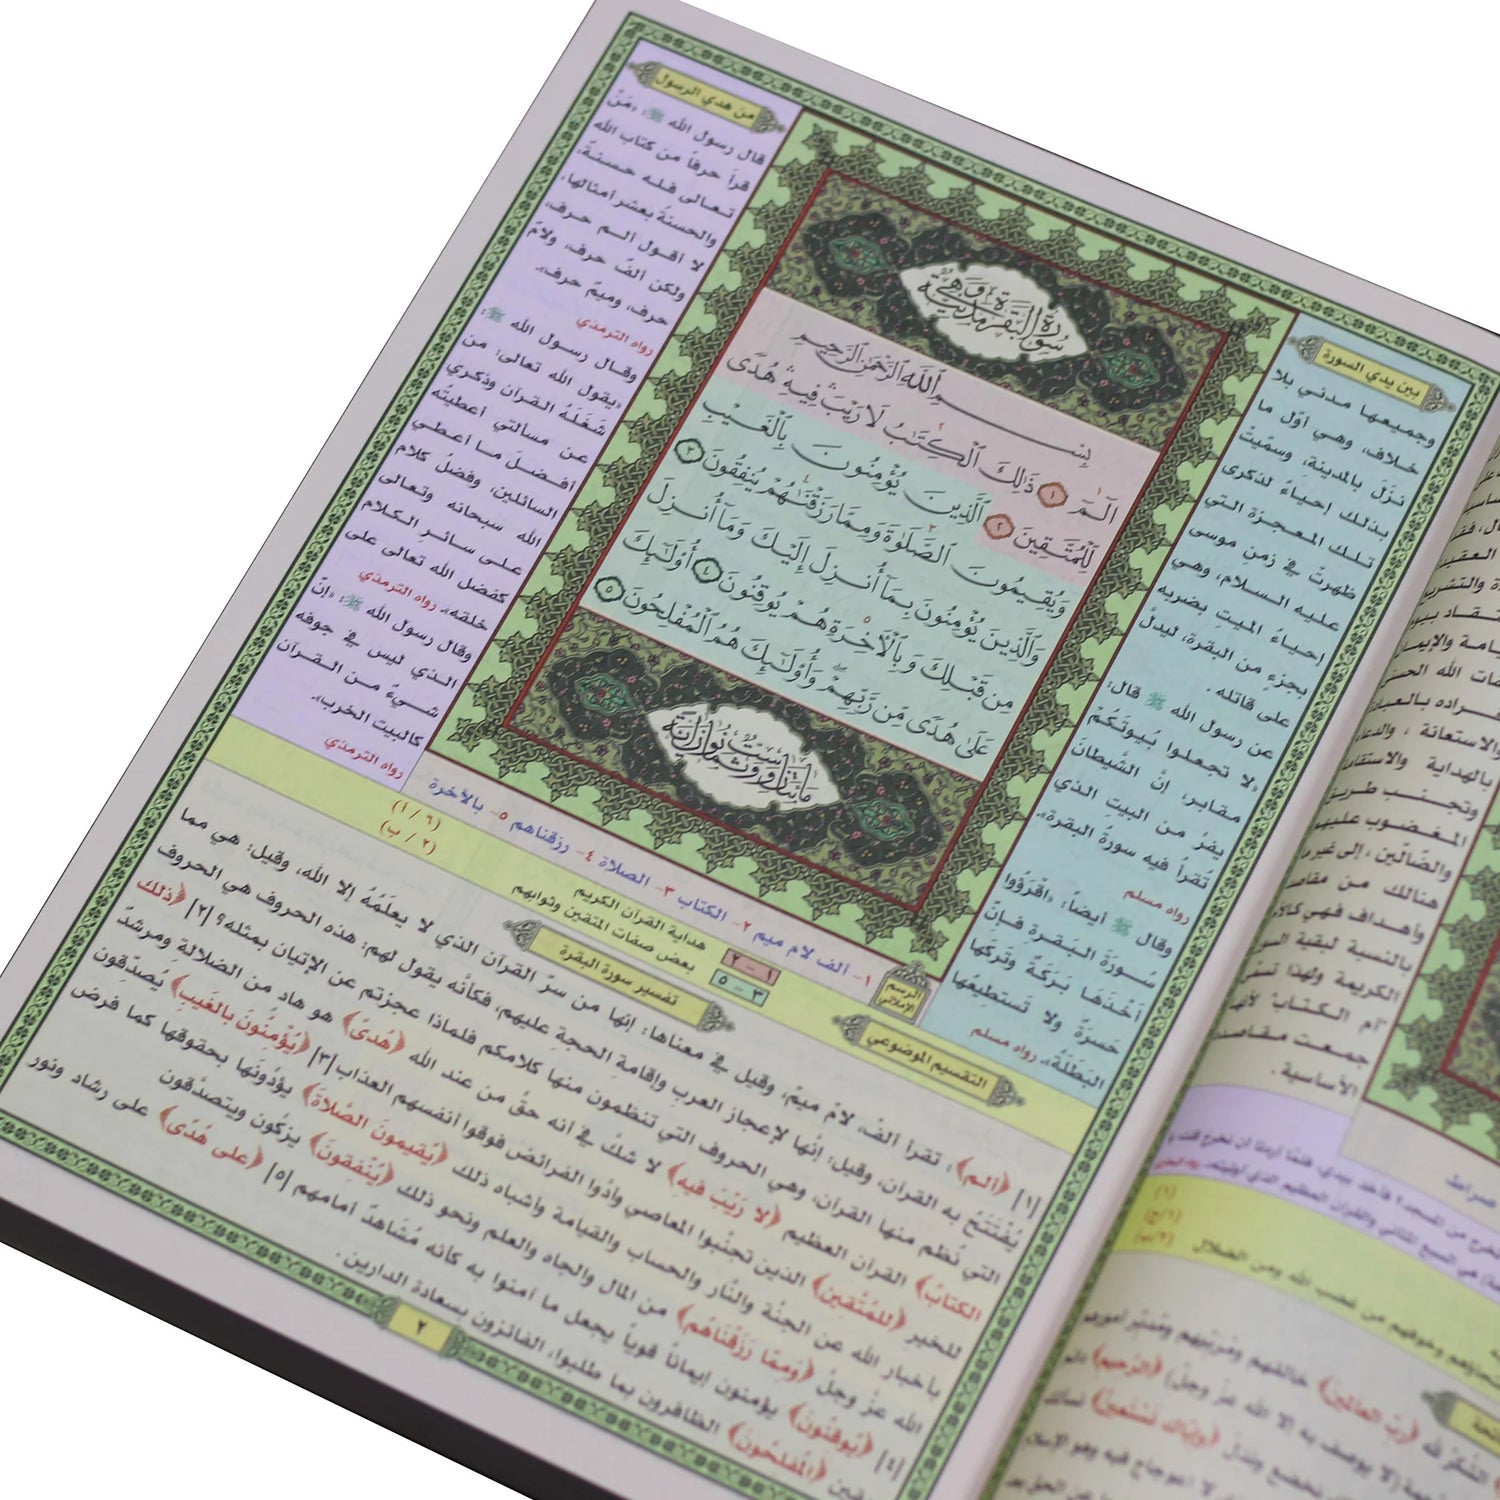 بين يدي السورة
وجميعها مدني بلا
خلاف، وهي أوّل ما
نزَلَ بالمدينة، وسمّيتْ
بذلك إحياءً لذكرى
تلك المعجزة التي
ظهرتْ في زمن موسى
عليه السلام، وهي
إحياءُ الميتِ بضربه
بجزءٍ من البقرة، ليدلَّ
على قاتله.
عن رسول الله ﷺ قال:
«لا تجعلوا بُيوتَكُمْ
مقابر، إنَّ الشَّيطانَ
يفرُ من البيت الذي
تُقرأُ فيه سورةُ البقرة».
رواه مسلم
وقال ﷺ أيضاً: «اقْرَؤُوا
سُورَةَ البَقرةِ فإنّ
أخْذَهَا بَرَكَةٌ وتَركَها
حَسرَةٌ ولا تَستَطِيعُها
البَطَلَةُ». رواه مسلم
سورة البقرة وهي مدنية
بِسْمِ ٱللَّهِ ٱلرَّحْمَٰنِ ٱلرَّحِيمِ
الٓمٓ ١ ذَٰلِكَ ٱلْكِتَٰبُ لَا رَيْبَ ۛ فِيهِ ۛ هُدًى
لِّلْمُتَّقِينَ ٢ ٱلَّذِينَ يُؤْمِنُونَ بِٱلْغَيْبِ
وَيُقِيمُونَ ٱلصَّلَوٰةَ وَمِمَّا رَزَقْنَٰهُمْ يُنفِقُونَ ٣
وَٱلَّذِينَ يُؤْمِنُونَ بِمَآ أُنزِلَ إِلَيْكَ وَمَآ أُنزِلَ
مِن قَبْلِكَ وَبِٱلْءَاخِرَةِ هُمْ يُوقِنُونَ ٤ أُو۟لَٰٓئِكَ
عَلَىٰ هُدًى مِّن رَّبِّهِمْ ۖ وَأُو۟لَٰٓئِكَ هُمُ ٱلْمُفْلِحُونَ ٥
مائتان وست وثمانون آية
من هدي الرسول
قال رسول الله ﷺ: «مَنْ
قرأ حرفاً من كتاب الله
تعالى فله حسنةٌ،
والحسنةُ بعشر أمثالها،
لا أقول ألم حرف،
ولكن ألفٌ حرف، ولامٌ
حرف، وميمٌ حرف».
رواه الترمذي
وقال رسول الله ﷺ:
«يقول الله تعالى: من
شَغَلَهُ القرآن وذكري
عن مسألتي أعطيتُه
أفضلَ ما أعطي
السائلين، وفضلُ كلام
الله سبحانه وتعالى
على سائر الكلام
كفضل الله تعالى على
خلقه». رواه الترمذي
وقال رسول الله ﷺ: «إنّ
الذي ليس في جوفه
شيءٌ من القرآن
كالبيت الخرب».
رواه الترمذي
الرسم الإملائي
١- ألف لام ميم ٢- الكتاب ٣- الصلاة ٤- رزقناهم ٥- بالآخرة
التقسيم الموضوعي
١ - ٢ هداية القرآن الكريم (٦ / ١)
٣ - ٥ بعض صفات المتقين وثوابهم (٢ / ب)
تفسير سورة البقرة
[١] ﴿الم﴾: تقرأ ألفْ، لامْ ميمْ، وقيل في معناها: إنها من سرّ القرآن الذي لا يعلَمُهُ إلا الله، وقيل: هي مما
يُفْتَتَحُ به القرآن، وقيل: إنّها لإعجاز العرب وإقامةِ الحجةِ عليهم، فكأنه يقول لهم: هذه الحروف هي الحروف
التي نُظم منها القرآن، وهي الحروف التي تنظمون منها كلامكم فلماذا عجزتم عن الإتيان بمثله؟ [٢] ﴿ذلك
الكتابُ﴾ القرآن العظيم ﴿لا رَيْبَ فيهِ﴾ لا شكّ في أنه حقٌ من عند الله ﴿هُدىً﴾ هو هادٍ من الضلالةِ ومرشدٌ
للخير ﴿للمُتَّقين﴾ الذين تجنّبوا المعاصي وأدّوا الفرائض فوقوا أنفسهم العذاب [٣] ﴿يُؤْمنُونَ بالغَيبِ﴾ يُصدّقون
بأخبار الله عن الجنّة والنّار والحساب والقيامة وأشباه ذلك ﴿يُقيمونَ الصَّلاةَ﴾ يؤدّونَها بحقوقها كما فرض
الله عزّ وجلّ ﴿وَممَّا رَزَقْنَاهُم﴾ من المال والجاه والعلم ونحو ذلك ﴿يُنْفِقُونَ﴾ يزكّون ويتصدّقون
[٤] ﴿يُوقنُونَ﴾ يؤمنون إيماناً قوياً يجعل ما آمنوا به كأنه مُشَاهدٌ أمامهم [٥] ﴿على هُدًى﴾ على رشاد ونور
﴿المُفلحُونَ﴾ الظافرون بما طلبوا، الفائزون بسعادة الدارين.
٢